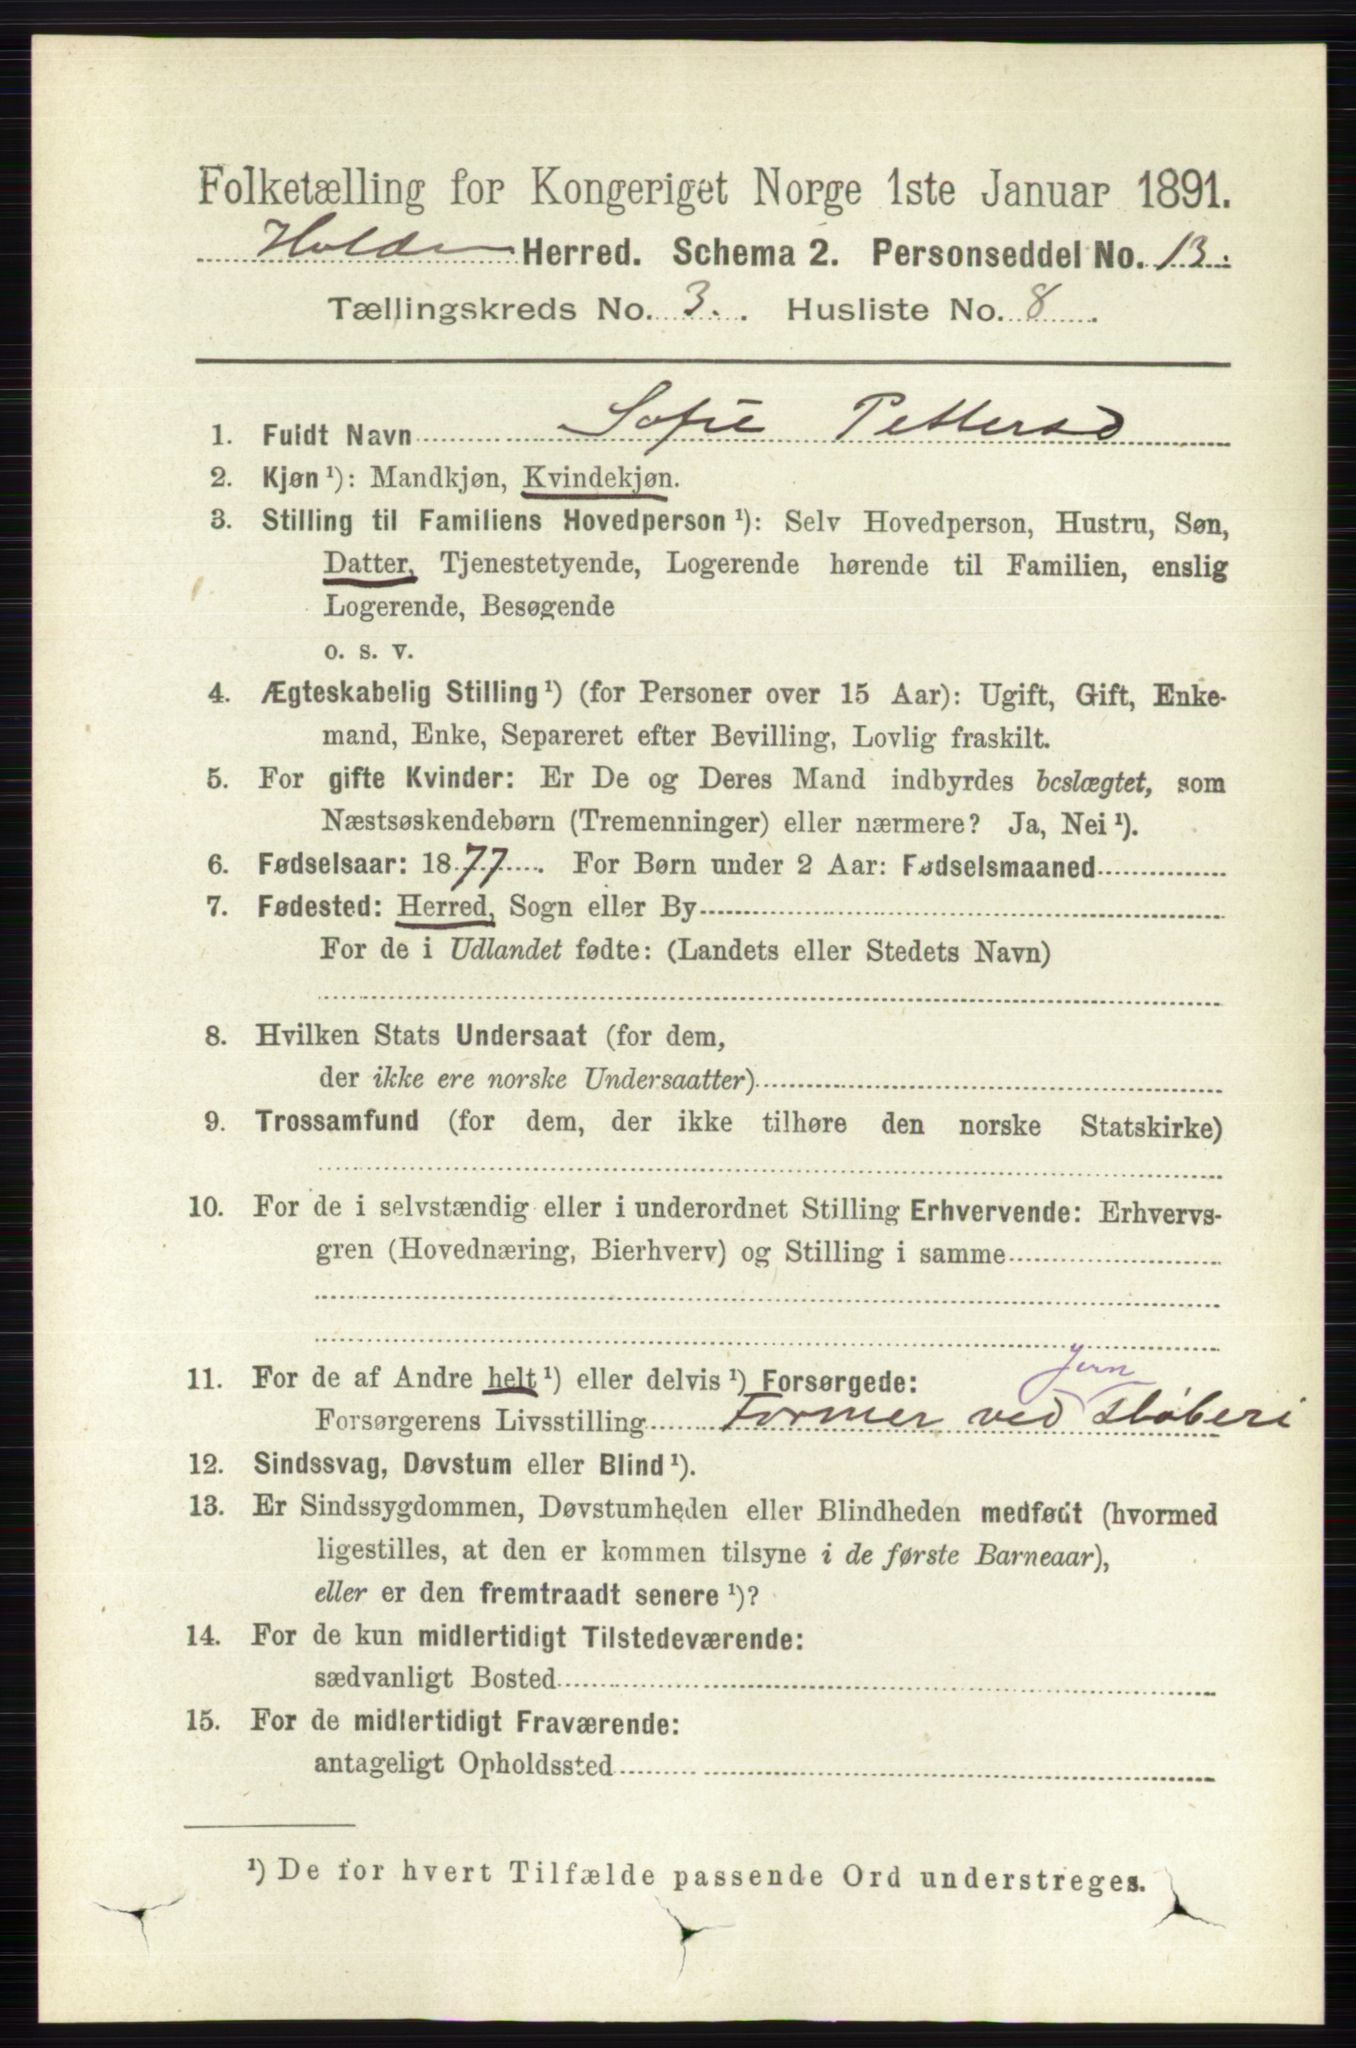 Folketælling for Kongeriget Norge 1ste Januar 1891.
Holden Herred. Schema 2. Personseddel No. 13.
Tællingskreds No. 3. Husliste No. 8.
1. Fuldt Navn Sofie Petters D
2. Kjøn ¹): Mandkjøn, Kvindekjøn.
3. Stilling til Familiens Hovedperson ¹): Selv Hovedperson, Hustru, Søn,
Datter, Tjenestetyende, Logerende hørende til Familien, enslig
Logerende, Besøgende
o. s. v.
4. Ægteskabelig Stilling ¹) (for Personer over 15 Aar): Ugift, Gift, Enke-
mand, Enke, Separeret efter Bevilling, Lovlig fraskilt.
5. For gifte Kvinder: Er De og Deres Mand indbyrdes beslægtet, som
Næstsøskendebørn (Tremenninger) eller nærmere? Ja, Nei ¹).
6. Fødselsaar: 1877. For Børn under 2 Aar: Fødselsmaaned
7. Fødested: Herred, Sogn eller By
For de i Udlandet fødte: (Landets eller Stedets Navn)
8. Hvilken Stats Undersaat (for dem,
der ikke ere norske Undersaatter)
9. Trossamfund (for dem, der ikke tilhøre den norske Statskirke)
10. For de i selvstændig eller i underordnet Stilling Erhvervende: Erhvervs-
gren (Hovednæring, Bierhverv) og Stilling i samme
11. For de af Andre helt ¹) eller delvis ¹) Forsørgede:
Jern
Forsørgerens Livsstilling Former ved støberi
12. Sindssvag, Døvstum eller Blind ¹).
13. Er Sindssygdommen, Døvstumheden eller Blindheden medfødt (hvormed
ligestilles, at den er kommen tilsyne i de første Barneaar),
eller er den fremtraadt senere ¹)?
14. For de kun midlertidigt Tilstedeværende:
sædvanligt Bosted
15. For de midlertidigt Fraværende:
antageligt Opholdssted
¹) De for hvert Tilfælde passende Ord understreges.